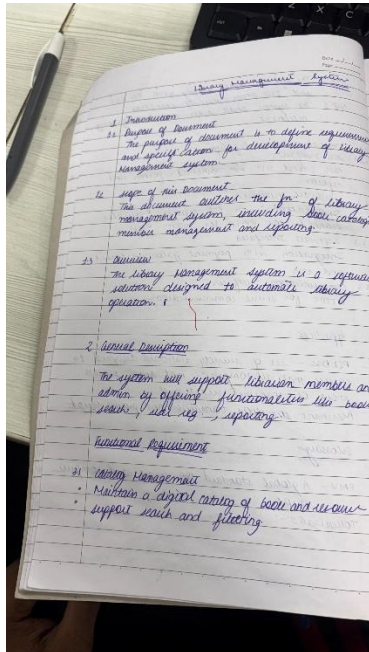 Date
Library Management System
1 Introduction
1.1 Purpose of Document
The purpose of document is to define requirements
and specification for development of library
Management system.
1.2 scope of this Document
This document outlines the fn. of library
management system, including book catalog
member management and reporting.
1.3 Overview
The library Management system is a software
solution designed to automate library
operation.
2 General Description
The system will support librarian members and
admin by offering functionalities like book
search, user reg, reporting.
Functional Requirement
Catalog Management
• Maintain a digital catalog of books and resources
• support search and filtering